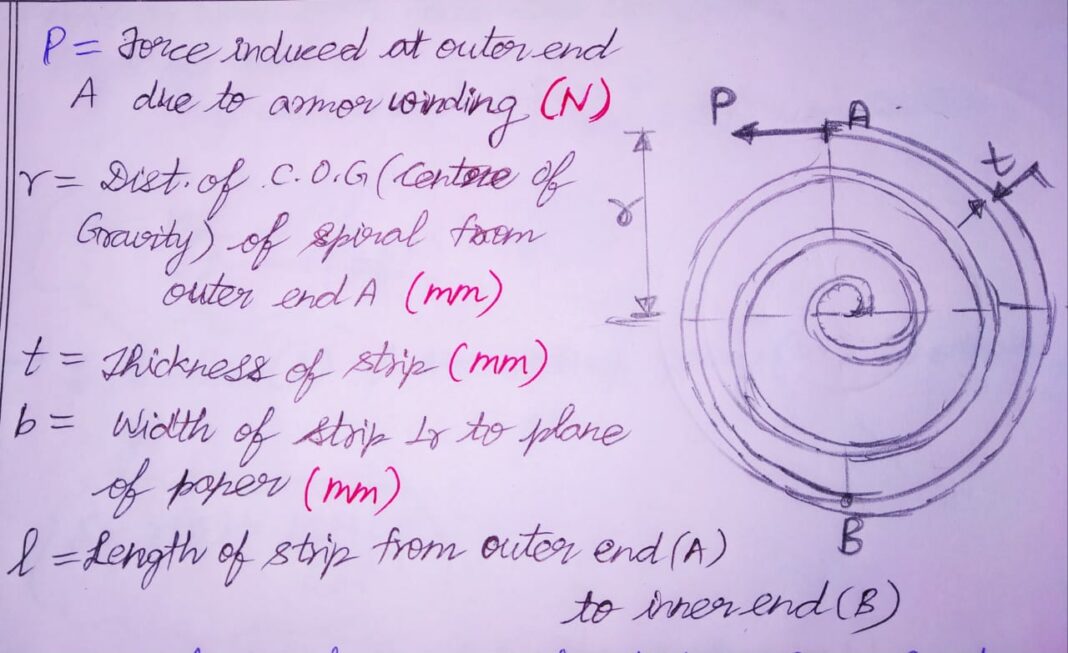 P = Force induced at outer end
A due to armor winding (N)
r = Dist. of C.O.G (Centre of
Gravity) of spiral from
outer end A (mm)
t = Thickness of strip (mm)
b = Width of strip Lr to plane
of paper (mm)
l = Length of strip from outer end (A)
to inner end (B)
P
A
t
r
B